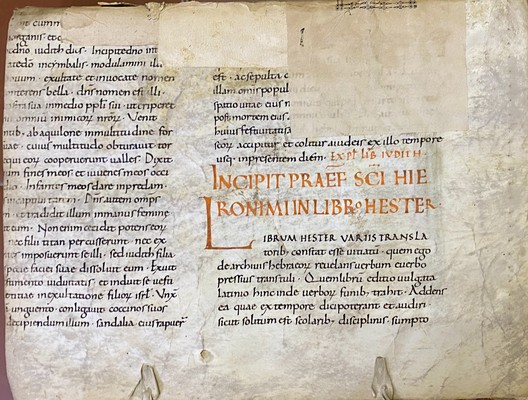 cumm
organis etc
cedno iudith dicens. Incipite dno in
atedo incymbalis. modulamini illi
ouum. exaltate et inuocate nomen
onterens bella. dns nomen est illi
a sua inmedio ppli sui. ut eriperet
omniu inimicor nror. Venit
ontib; ab aquilone inmultitudine for
cuius multitudo obturauit tor
equi eor cooperuerunt ualles. Dixit
fines meos et iuuenes meos occi
Infantes meos dare inpredam.
Dns autem omps
et tradidit illum inmanus femine
Non enim cecidit potens eor
nec filii titan percusserunt. nec ex
imposuerunt se illi. sed iudith filia
specie faciei suae dissoluit eum. Exuit
uiduitatis. et induit se uesti
titiae inexultatione filior isrl. Unx
unguento. conligauit cincinnos suos
decipiendum illum. sandalia eius rapuer
est. ac sepulta e
illam omis popul
spatio uitae eius n
post mortem eius.
huius festiuitatis
scor accipitur et colitur a iudeis ex illo tempore
usq; inpresentem diem. EXPT LIB IUDITH
INCIPIT PRAEF SCI HIE
RONIMI IN LIBRO HESTER
LIBRUM HESTER VARIIS TRANSLA
torib; constat esse uitiatu. quem ego
de archiuis hebraeor reuelans uerbum e uerbo
pressius transtuli. Quem libru editio uulgata
latinio hinc inde uerbor funib; trahit. Addens
ea quae ex tempore dici poterant et audiri.
sicut solitum est scolarib; disciplinis. sumpto